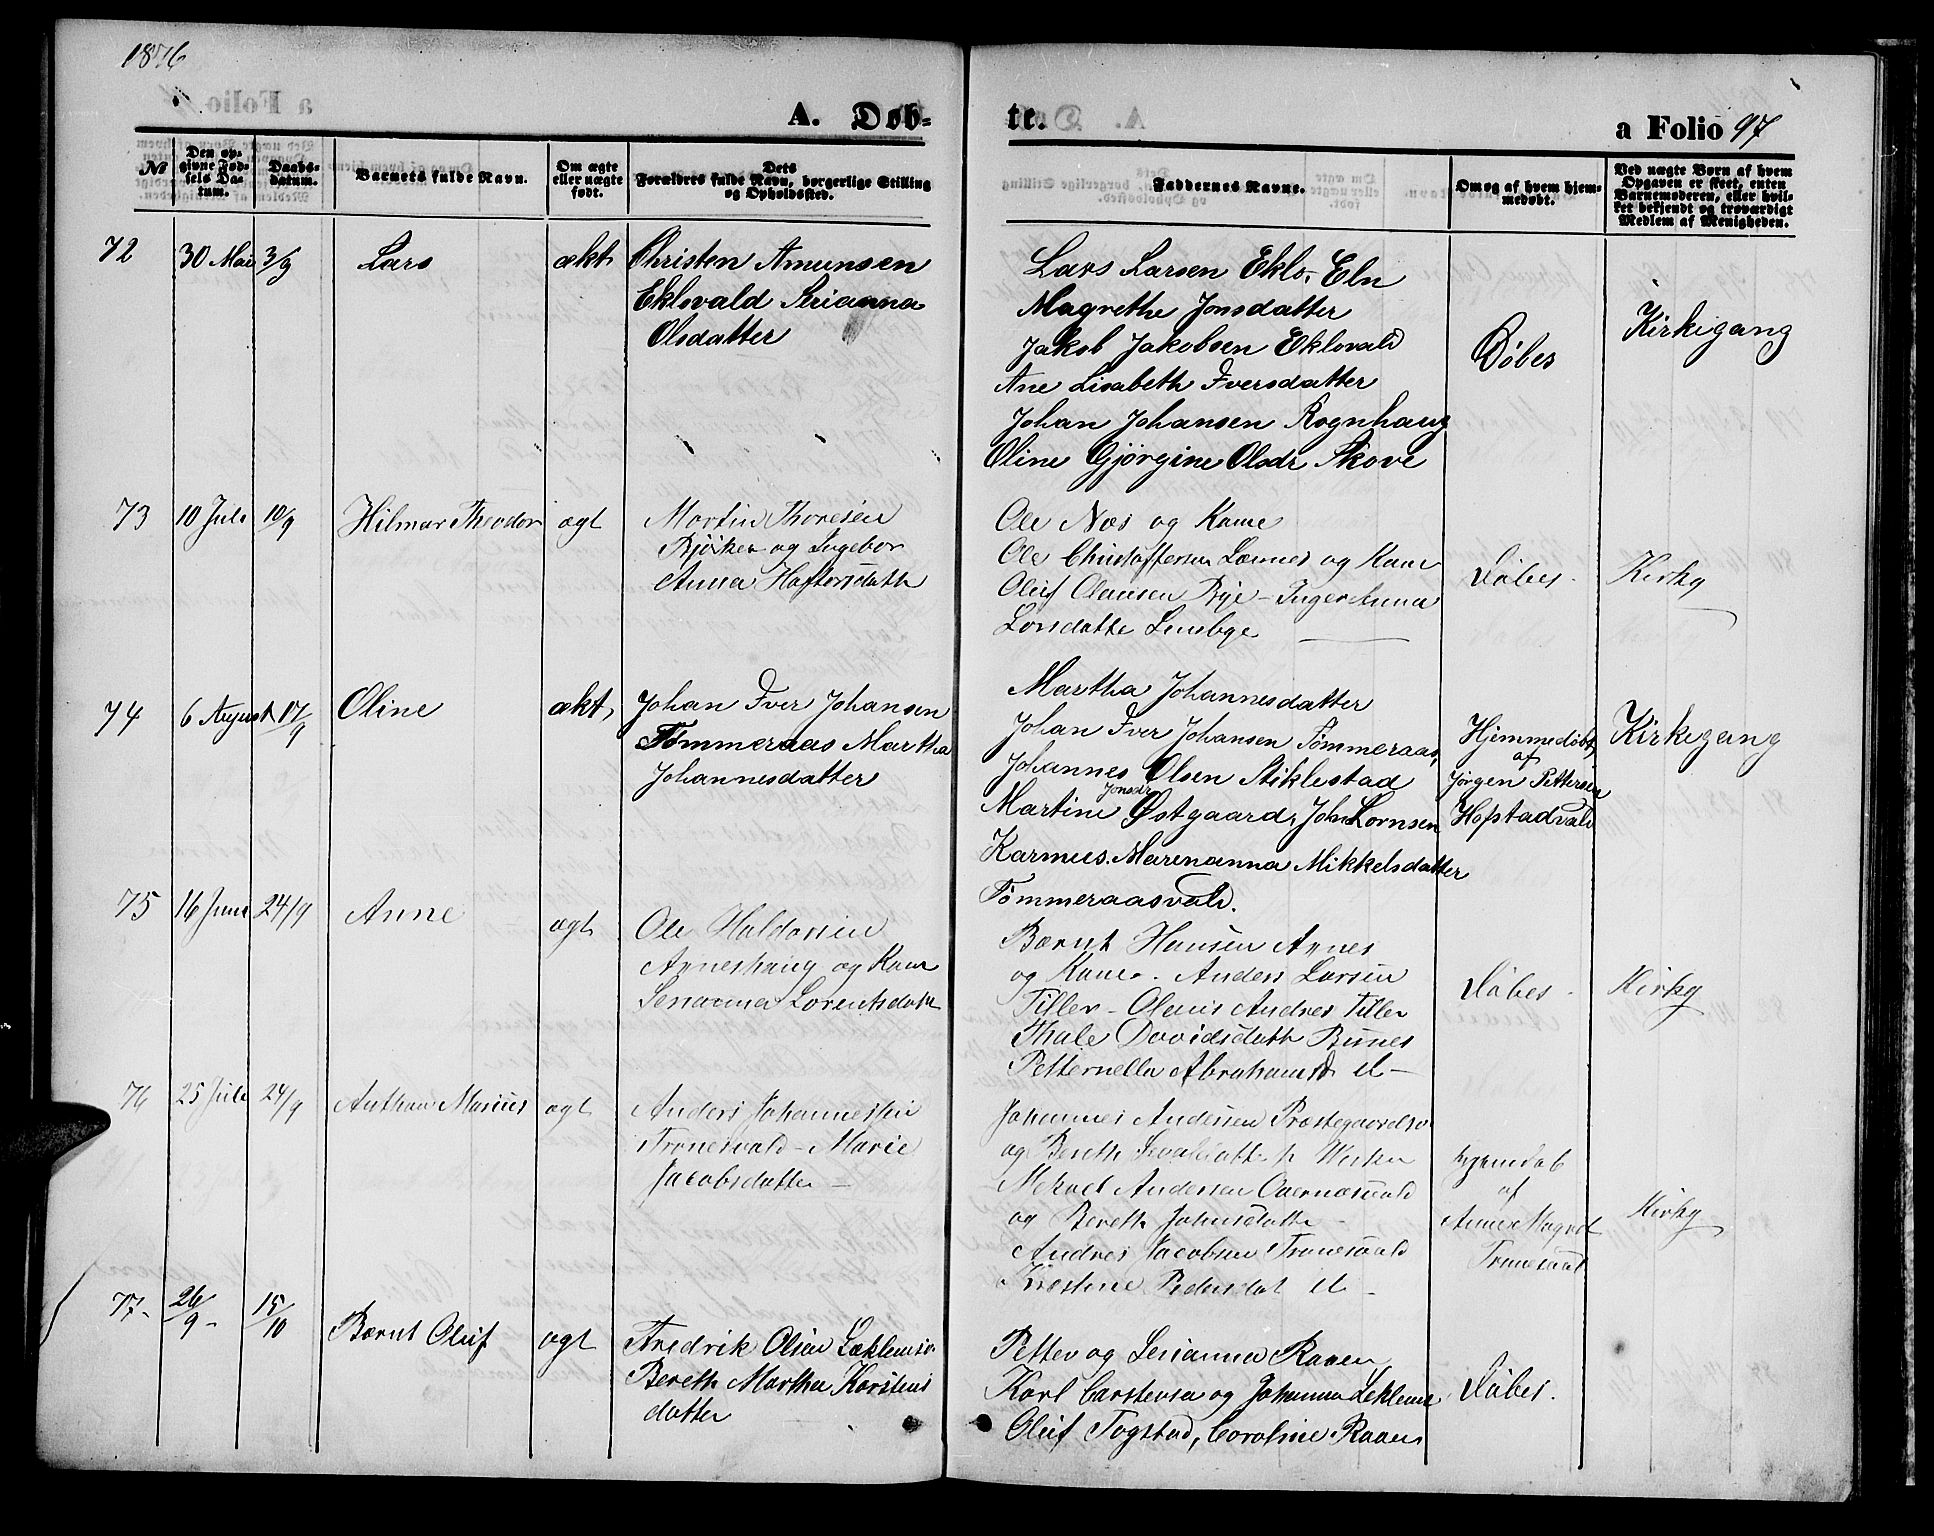 1876
A. Døb-
te.
a Folio 97
№
Den op-
givne Fød-
sels Da-
tum.
Daabs-
datum.
Barnets fulde Navn.
Om ægte
eller uægte
født.
Dets
Forældres fulde Navn, borgerlige Stilling
og Opholdssted.
Faddernes Navne.
Om og af hvem hjem-
medøbt.
Ved uægte Børn af hvem
Opgaven er skeet, enten
Barnemoderen, eller hvil-
ket bekjendt og troværdigt
Medlem af Menigheden.
72
30 Mai
3/9
Lars
ækt
Christen Amunsen
Eklovald Serianna
Olsdatter
Lars Larsen Eklo, Eln
Magrethe Jonsdatter
Jakob Jakobsen Eklovald
Ane Lisabeth Iversdatter
Johan Johansen Rognhaug
Oline Gjørgine Olsdr Skove
Døbes
Kirkegang
73
10 Juli
10/9
Hilmar Theodor
ægt
Martin Thoresen
og Ingebor
Anna Haftorsdatte
Ole Næs og Kone
Ole Christoffersen og Kone
Oluf Olausen Rye - Inger Anna
Larsdatte
Døbes
Kirkg
74
6 August
17/9
Oline
ækt,
Johan Iver Johansen
Tømmeraas Martha
Johannesdatter
Martha Johannesdatter
Johan Iver Johansen Tømmeraas,
Johannes Olsen Stiklestad
Martine Jonsdr Østgaard, John Lornsen
Karmus. Marenanna Mikkelsdatter
Tømmeraasvald.
Hjemmedøbt
af
Jørgen Pettersen
Hofstadvald
Kirkegang
75
16 Juni
24/9
Anne
ægt
Ole Haldorsen
og Kone
Serianna Lorentsdatte
Bærnt Hansen
og Kone - Anders Larsen
Tiller - Olaus Andres Tiller
Thale Davidsdatte Bunes
Petternella Abrahamsd
Døbes
Kirkg
76
25 Juli
24/9
Anthon Marius
ægt
Anders Johannessen
Tronesvald - Marie
Jacobsdatter -
Johannes Andersen
og Bereth
Mekael Andersen Overnæsvald
og Bereth Johnsdatte -
Andres Jacobsen Tronesvald
Kirstine Pedersdat
Hjemdøb
af
Anne Magret
Tronesvald
Kirkg
77-
26/9-
15/10
Bærnt Oluf
ægt
Fredrik Olsen
Bereth Martha Karstens
datter
Petter og Serianna Raaen
Karl Carstensen og Johanna Leklem
Oluf Togstad, Caroline Raaen
Døbes.